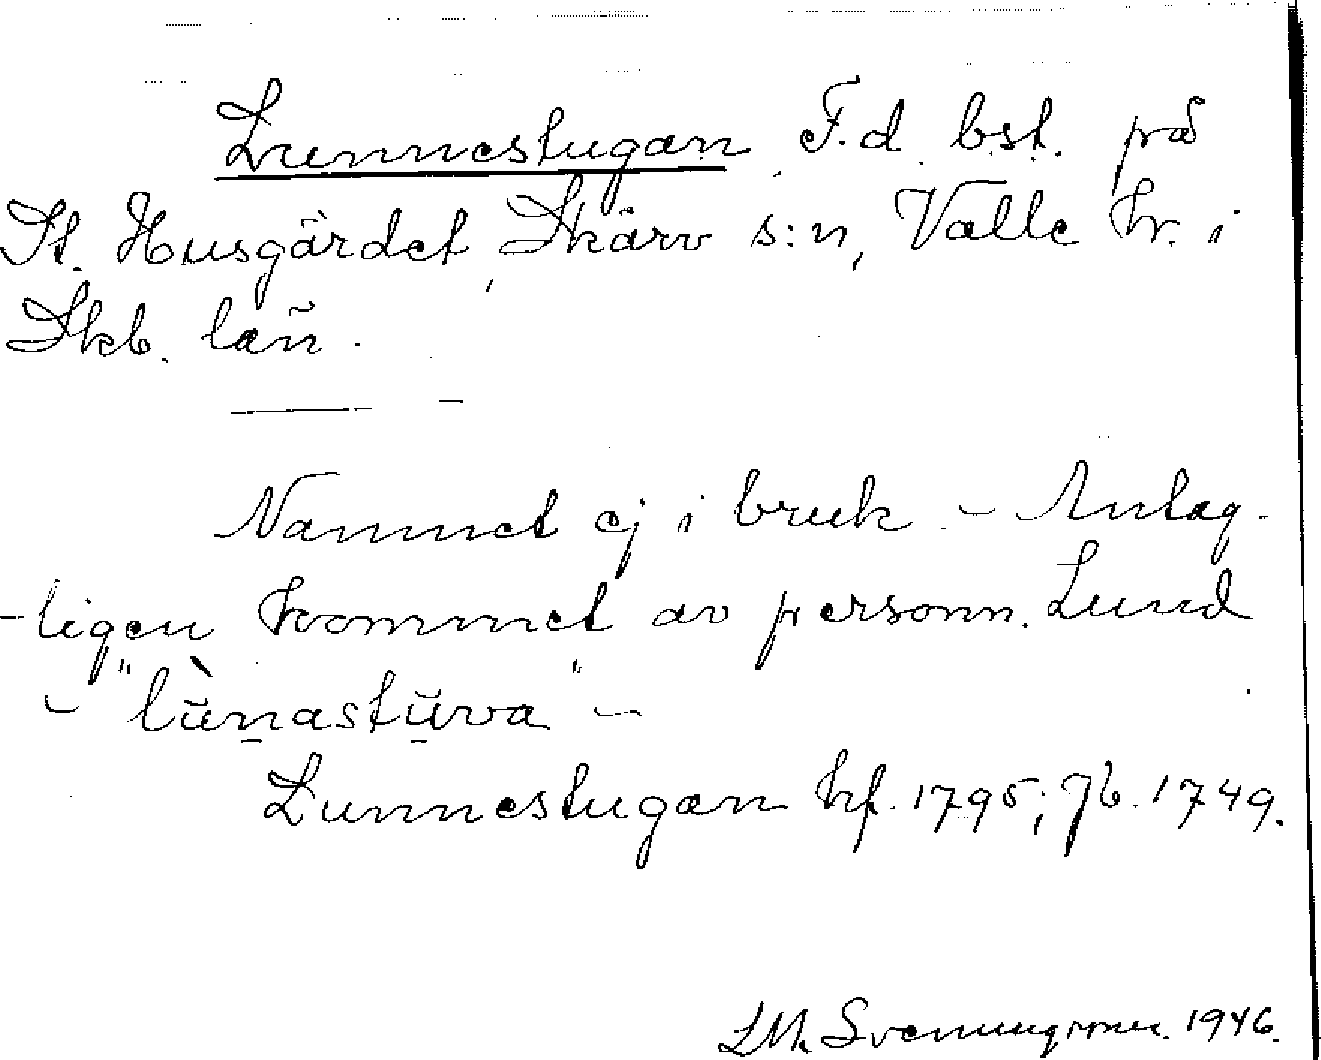 Lunnestugan F.d. bst. på
St. Husgärdet, Skärv s:n, Valle hr. i
Skb. län.
Namnet ej i bruk. - Antag-
-ligen kommet av personn. Lund
- "lùn̠astŭ̠va" -
Lunnestugan hf. 1795; Jb. 1749.
1946.